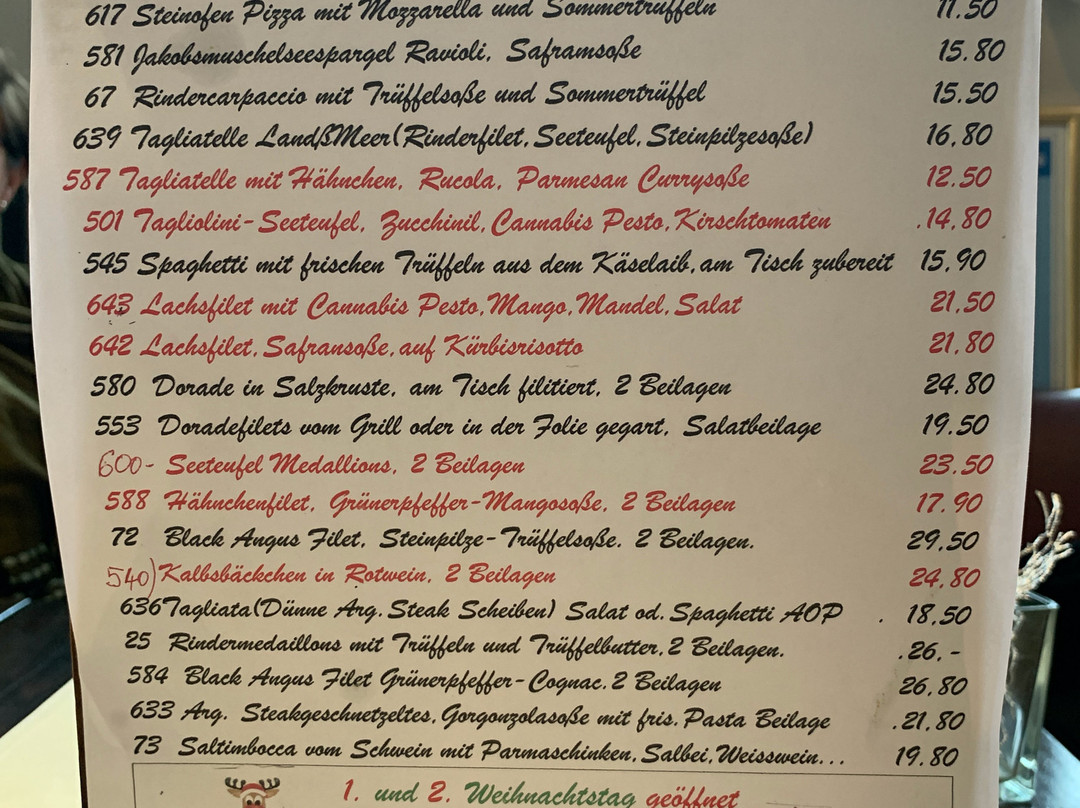 617 Steinofen Pizza mit Mozzarella und Sommertrüffeln 11.50
581 Jakobsmuschelseespargel Ravioli, Saframsoße 15.80
67 Rindercarpaccio mit Trüffelsoße und Sommertrüffel 15.50
639 Tagliatelle LandßMeer(Rinderfilet,Seeteufel,Steinpilzesoße) 16,80
587 Tagliatelle mit Hähnchen, Rucola, Parmesan Currysoße 12.50
501 Tagliolini-Seeteufel, Zucchinil,Cannabis Pesto,Kirschtomaten .14,80
545 Spaghetti mit frischen Trüffeln aus dem Käselaib,am Tisch zubereit 15,90
643 Lachsfilet mit Cannabis Pesto,Mango,Mandel,Salat 21,50
642 Lachsfilet,Safransoße,auf Kürbisrisotto 21,80
580 Dorade in Salzkruste, am Tisch filitiert, 2 Beilagen 24.80
553 Doradefilets vom Grill oder in der Folie gegart, Salatbeilage 19.50
600- Seeteufel Medallions, 2 Beilagen 23.50
588 Hähnchenfilet, Grünerpfeffer-Mangosoße, 2 Beilagen 17.90
72 Black Angus Filet, Steinpilze-Trüffelsoße. 2 Beilagen. 29,50
540) Kalbsbäckchen in Rotwein, 2 Beilagen 24,80
636 Tagliata(Dünne Arg.Steak Scheiben) Salat od.Spaghetti AOP . 18,50
25 Rindermedaillons mit Trüffeln und Trüffelbutter,2 Beilagen. .26,-
584 Black Angus Filet Grünerpfeffer-Cognac,2 Beilagen 26,80
633 Arg. Steakgeschnetzeltes,Gorgonzolasoße mit fris.Pasta Beilage .21,80
73 Saltimbocca vom Schwein mit Parmaschinken,Salbei,Weisswein... 19.80
1. und 2. Weihnachtstag geöffnet